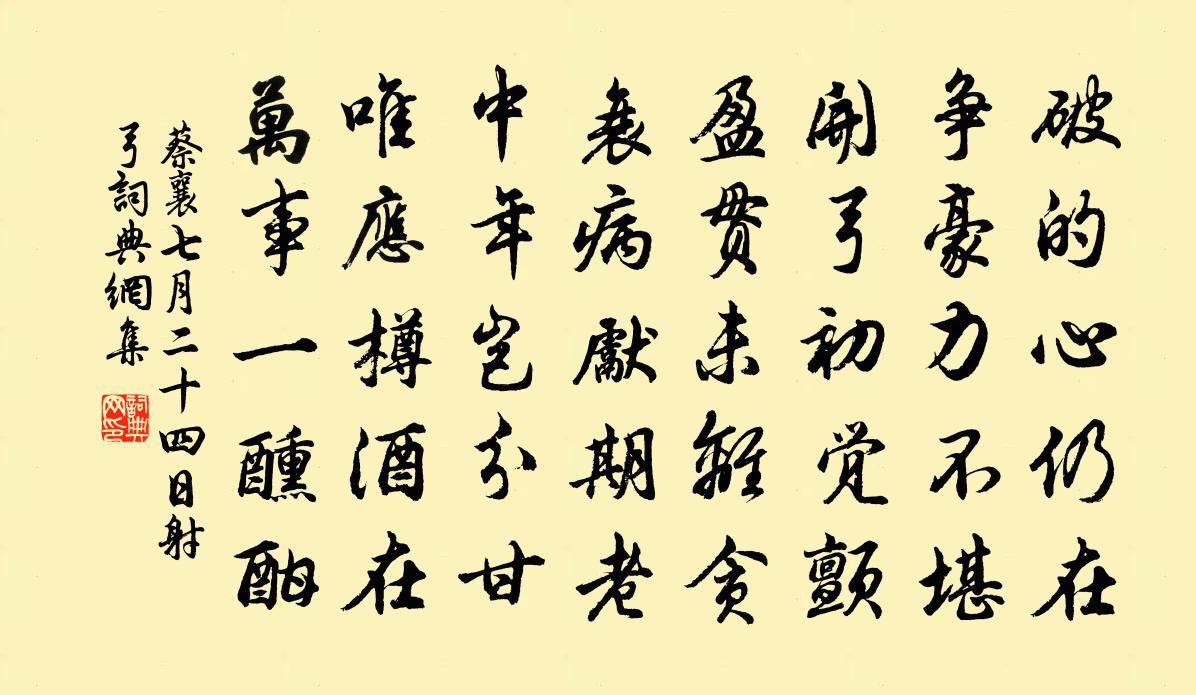 破的心仍在
争豪力不堪
開弓初觉顫
盈贯未離貪
衰病獻期老
中年岂分甘
唯應樽酒在
萬事一醺酣
蔡襄七月二十四日射
弓詞典網集
詞典
网印